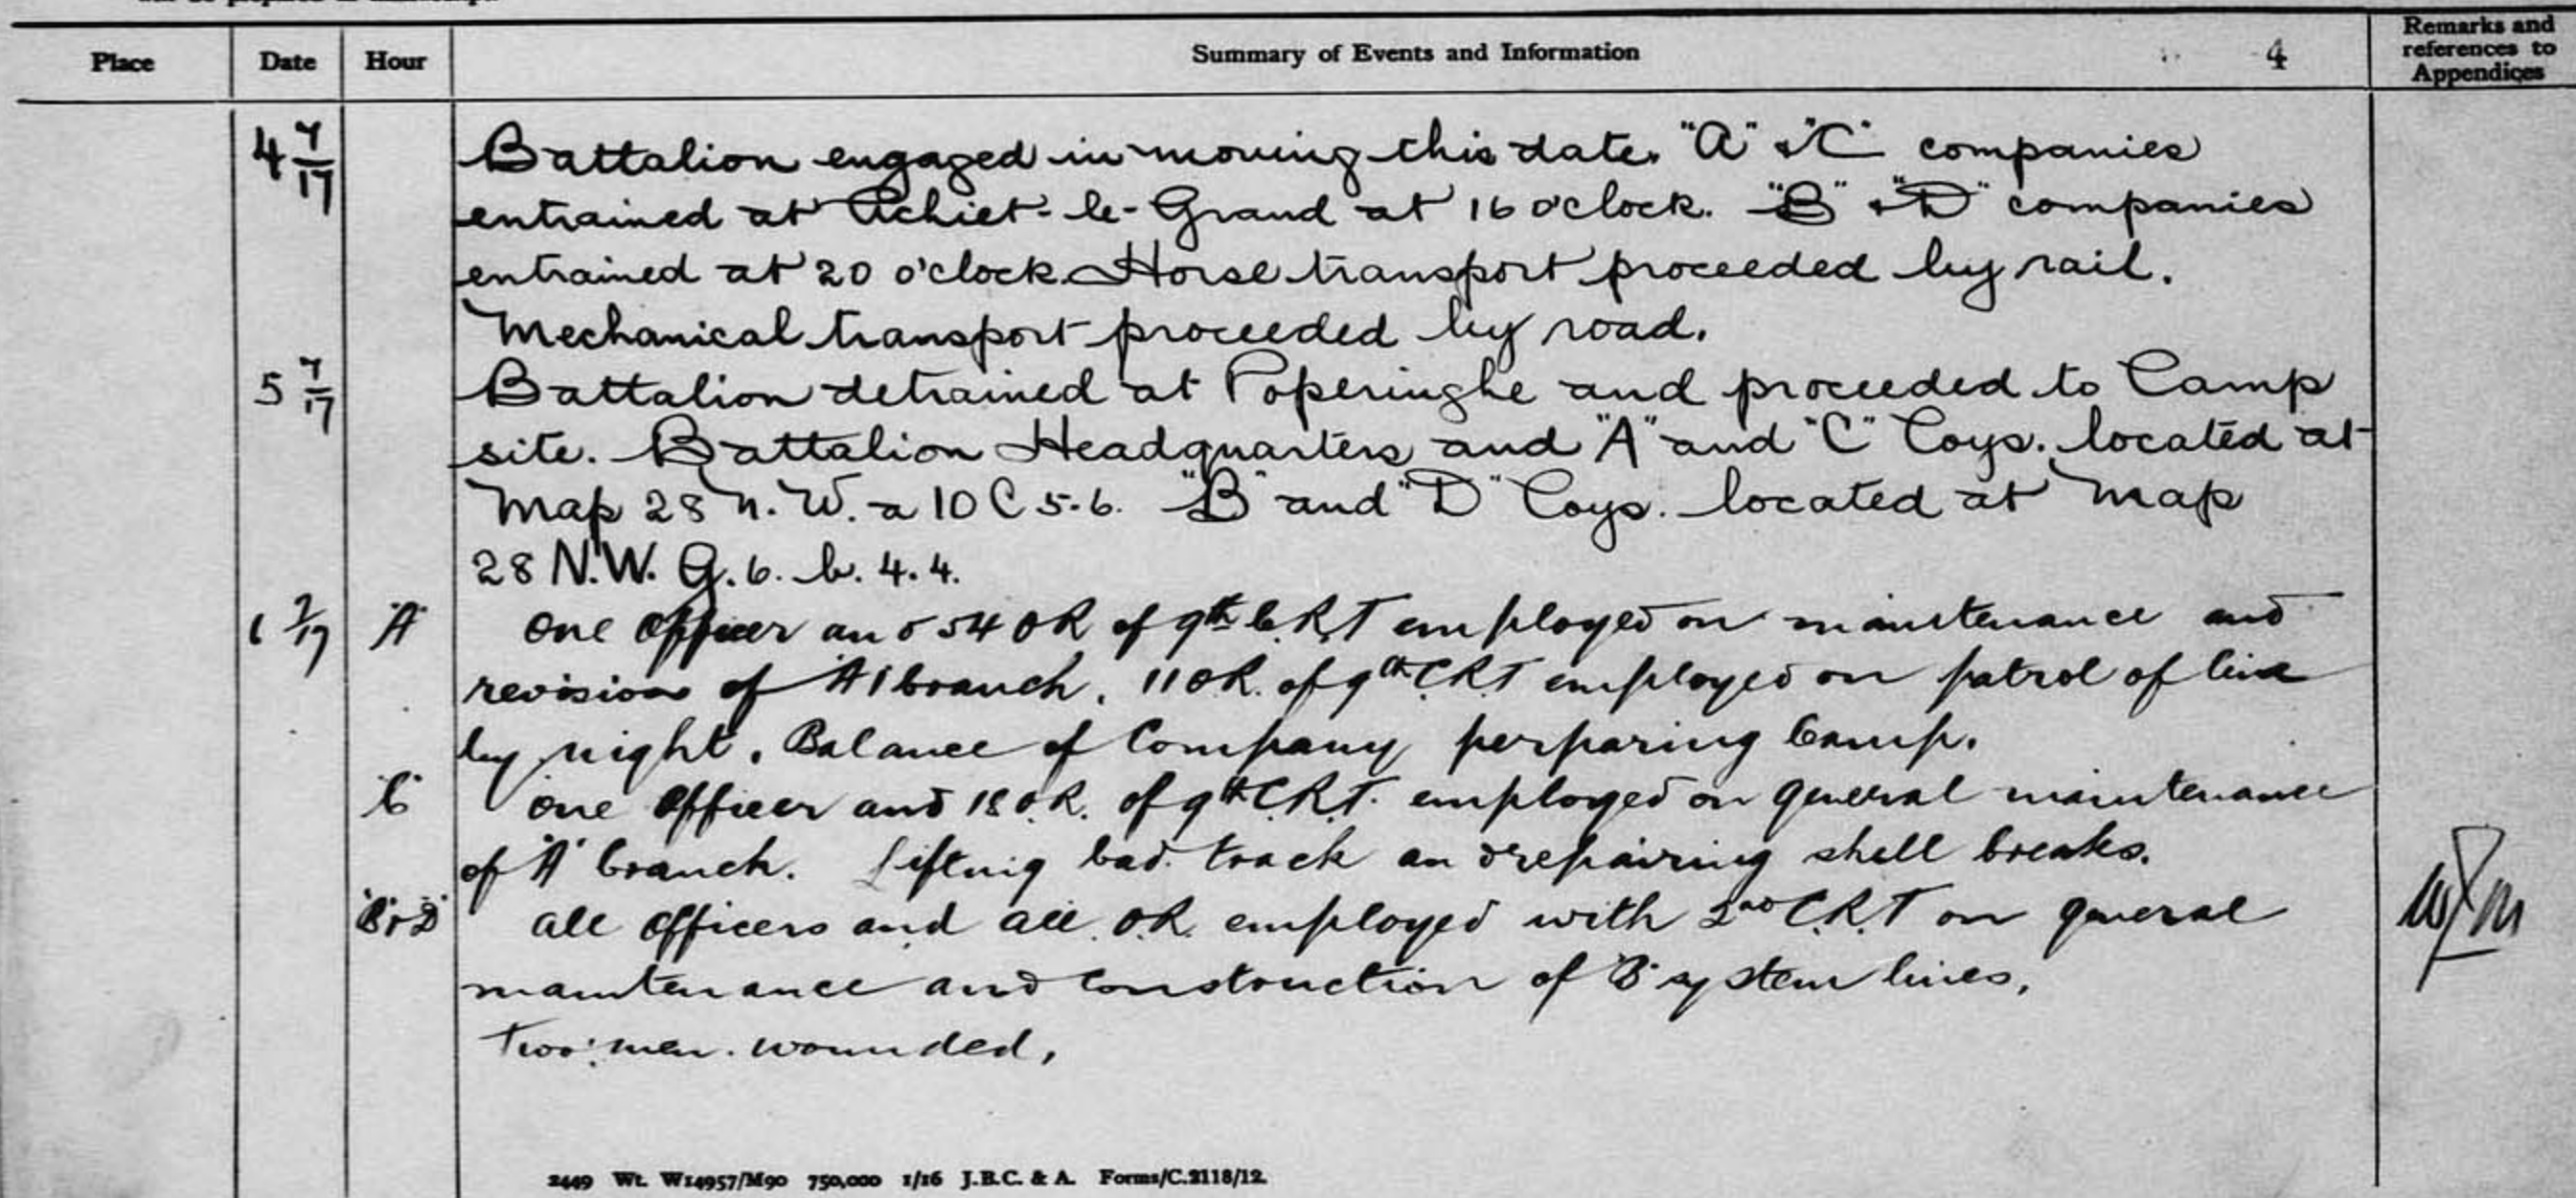 Place Date Hour Summary of Events and Information 4 Remarks and references to Appendices
4 7/17 Battalion engaged in moving this date. "A" & "C" companies
entrained at Achiet-le-Grand at 16 o'clock. "B" & "D" companies
entrained at 20 o'clock. Horse transport proceeded by rail.
Mechanical transport proceeded by road.
5 7/17 Battalion detrained at Poperinghe and proceeded to Camp
site. Battalion Headquarters and "A" and "C" Coys. located at
Map 28 N.W. a 10 C 5.6. "B" and "D" Coys. located at Map
28 N.W. G.6.b.4.4.
6 7/17 "A" One Officer and 54 OR of 9th C.R.T employed on maintenance and
revision of A1 branch. 11 OR. of 9th C.R.T employed on patrol of line
by night. Balance of Company perparing Camp.
"C" One Officer and 18 O.R. of 9th C.R.T. employed on general maintenance
of "A" branch. Lifting bad track and repairing shell breaks.
"B & D" all Officers and all O.R. employed with 2nd C.R.T on general
maintenance and construction of "B" system lines.
Two men wounded.
2449 Wt. W14957/M90 750,000 1/16 J.B.C. & A. Forms/C.2118/12.